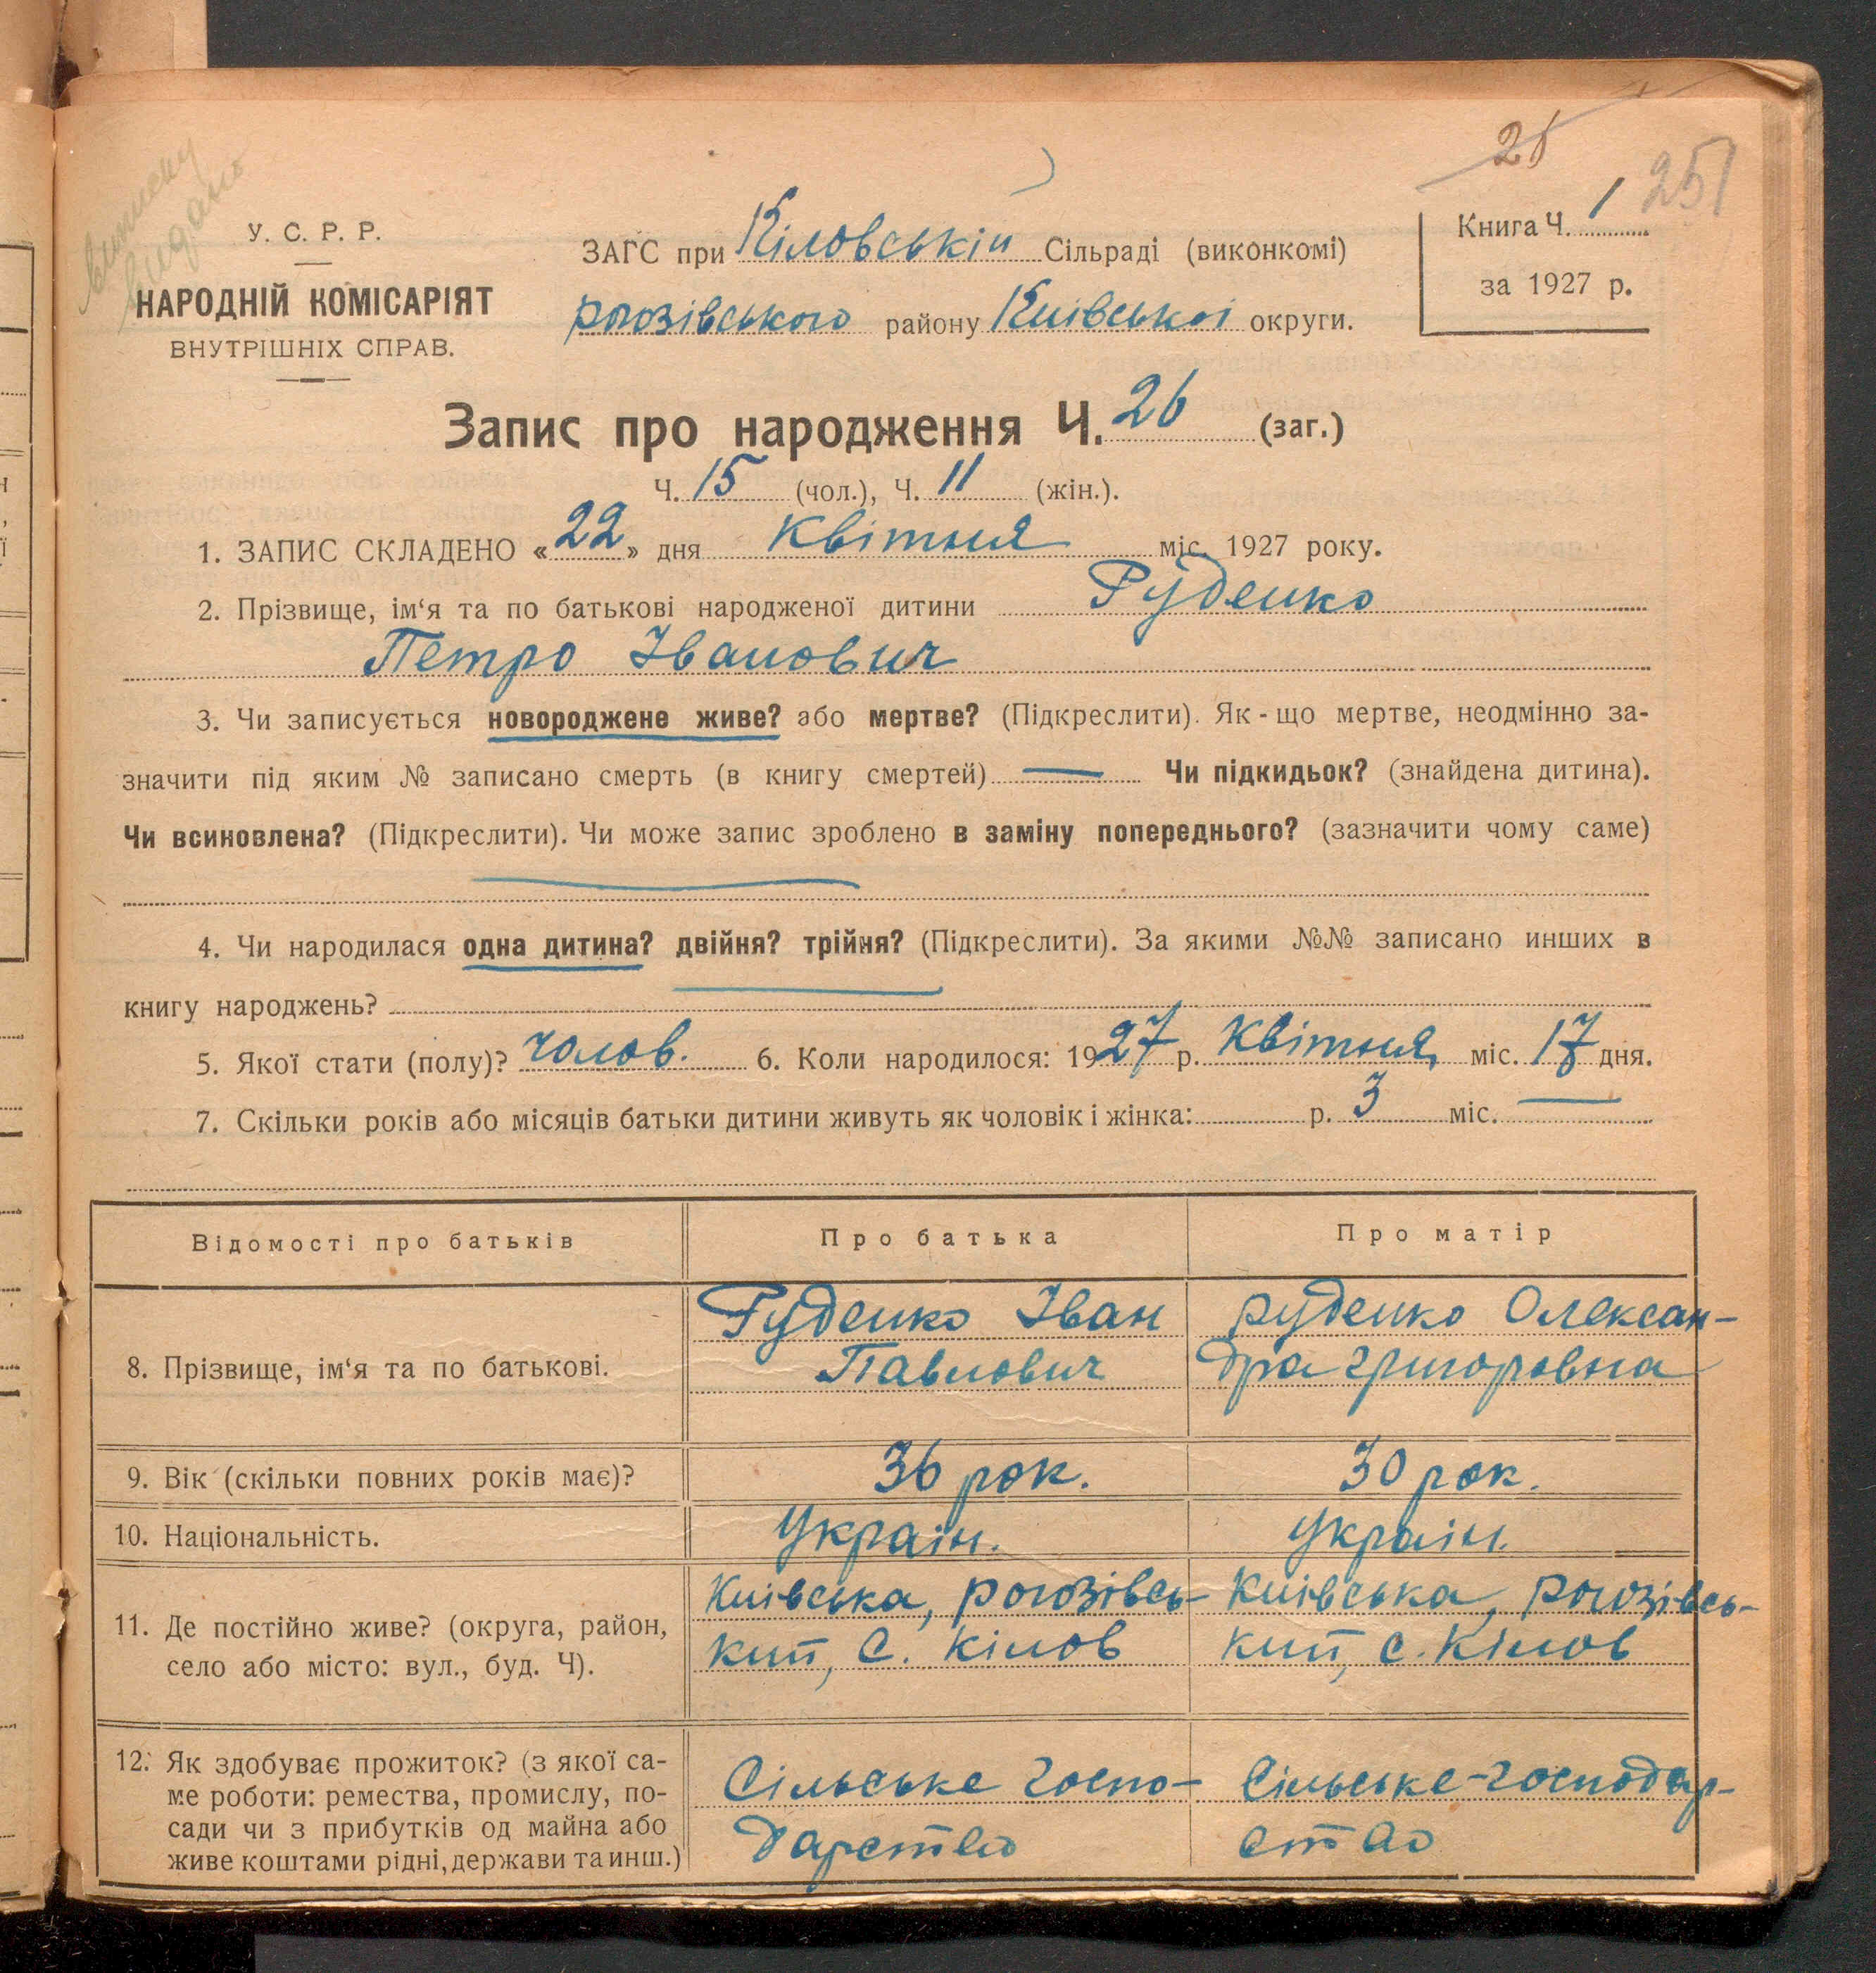 25
251
виписку
видано
У. С. Р. Р.
НАРОДНІЙ КОМІСАРІЯТ
ВНУТРІШНІХ СПРАВ.
ЗАГС при Кіловській Сільраді (виконкомі)
рогозівського району Київської округи.
Книга Ч. 1
за 1927 р.
Запис про народження Ч. 26 (заг.)
Ч. 15 (чол.), Ч. 11 (жін.).
1. ЗАПИС СКЛАДЕНО «22» дня Квітня міс. 1927 року.
2. Прізвище, ім‘я та по батькові народженої дитини Руденко
Петро Іванович
3. Чи записується новороджене живе? або мертве? (Підкреслити). Як-що мертве, неодмінно за-
значити під яким № записано смерть (в книгу смертей) — Чи підкидьок? (знайдена дитина).
Чи всиновлена? (Підкреслити). Чи може запис зроблено в заміну попереднього? (зазначити чому саме)
4. Чи народилася одна дитина? двійня? трійня? (Підкреслити). За якими №№ записано инших в
книгу народжень?
5. Якої стати (полу)? чолов. 6. Коли народилося: 1927 р. Квітня міс. 17 дня.
7. Скільки років або місяців батьки дитини живуть як чоловік і жінка: р. 3 міс. —
Відомості про батьків Про батька Про матір
8. Прізвище, ім‘я та по батькові.
Руденко Іван
Павлович
руденко Олексан-
дра григоровна
9. Вік (скільки повних років має)? 36 рок. 30 рок.
10. Національність. Украін. Украін.
11. Де постійно живе? (округа, район,
село або місто: вул., буд. Ч).
Київська, рогозівсь-
кий, с. Кілов
Київська, рогозівсь-
кий, с. Кілов
12. Як здобуває прожиток? (з якої са-
ме роботи: ремества, промислу, по-
сади чи з прибутків од майна або
живе коштами рідні, держави та инш.)
Сільське госпо-
дарство
Сільське-господар-
ство